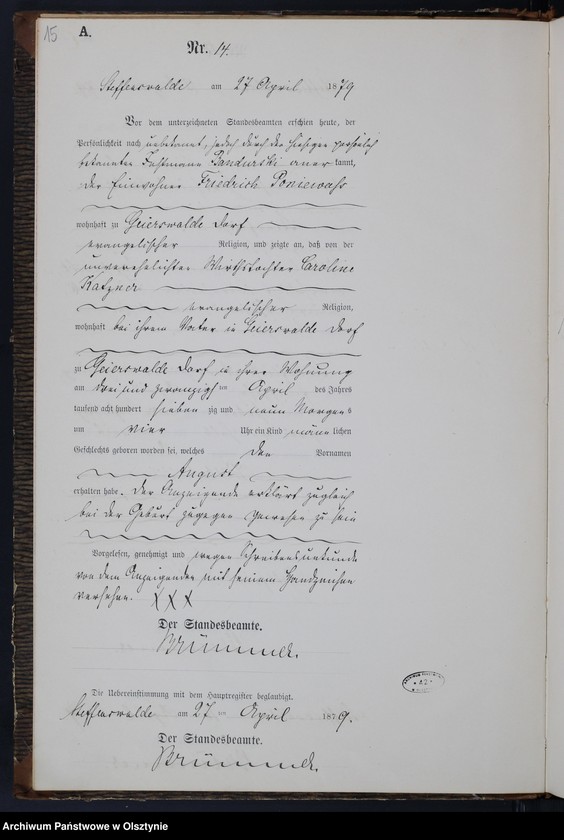 15
A.
Nr. 14.
Steffenswalde am 27 April 1879
Vor dem unterzeichneten Standesbeamten erschien heute, der
Persönlichkeit nach unbekannt, jedoch durch den hiesigen persönlich
bekannten Jandurski anerkannt,
der Einwohner Friedrich Poniewass
wohnhaft zu Geierswalde Dorf
evangelischer Religion, und zeigte an, daß von der
unverehelichten Wirthstochter Caroline
Katzner
evangelischer Religion,
wohnhaft bei ihrem Vater in Geierswalde Dorf
zu Geierswalde Dorf in ihrer Wohnung
am drei und zwanzigsten April des Jahres
tausend acht hundert siebenzig und neun Morgens
um vier Uhr ein Kind männlichen
Geschlechts geboren worden sei, welches den Vornamen
August
erhalten habe. Der Anzeigende erklärt zugleich
bei der Geburt zugegen gewesen zu sein
Vorgelesen, genehmigt und wegen Schreibensunkunde
von dem Anzeigenden mit seinem Handzeichen
versehen. XXX
Der Standesbeamte.
Die Uebereinstimmung mit dem Hauptregister beglaubigt.
Steffenswalde am 27 ten April 1879.
Der Standesbeamte.
Archiwum Państwowe w Olsztynie